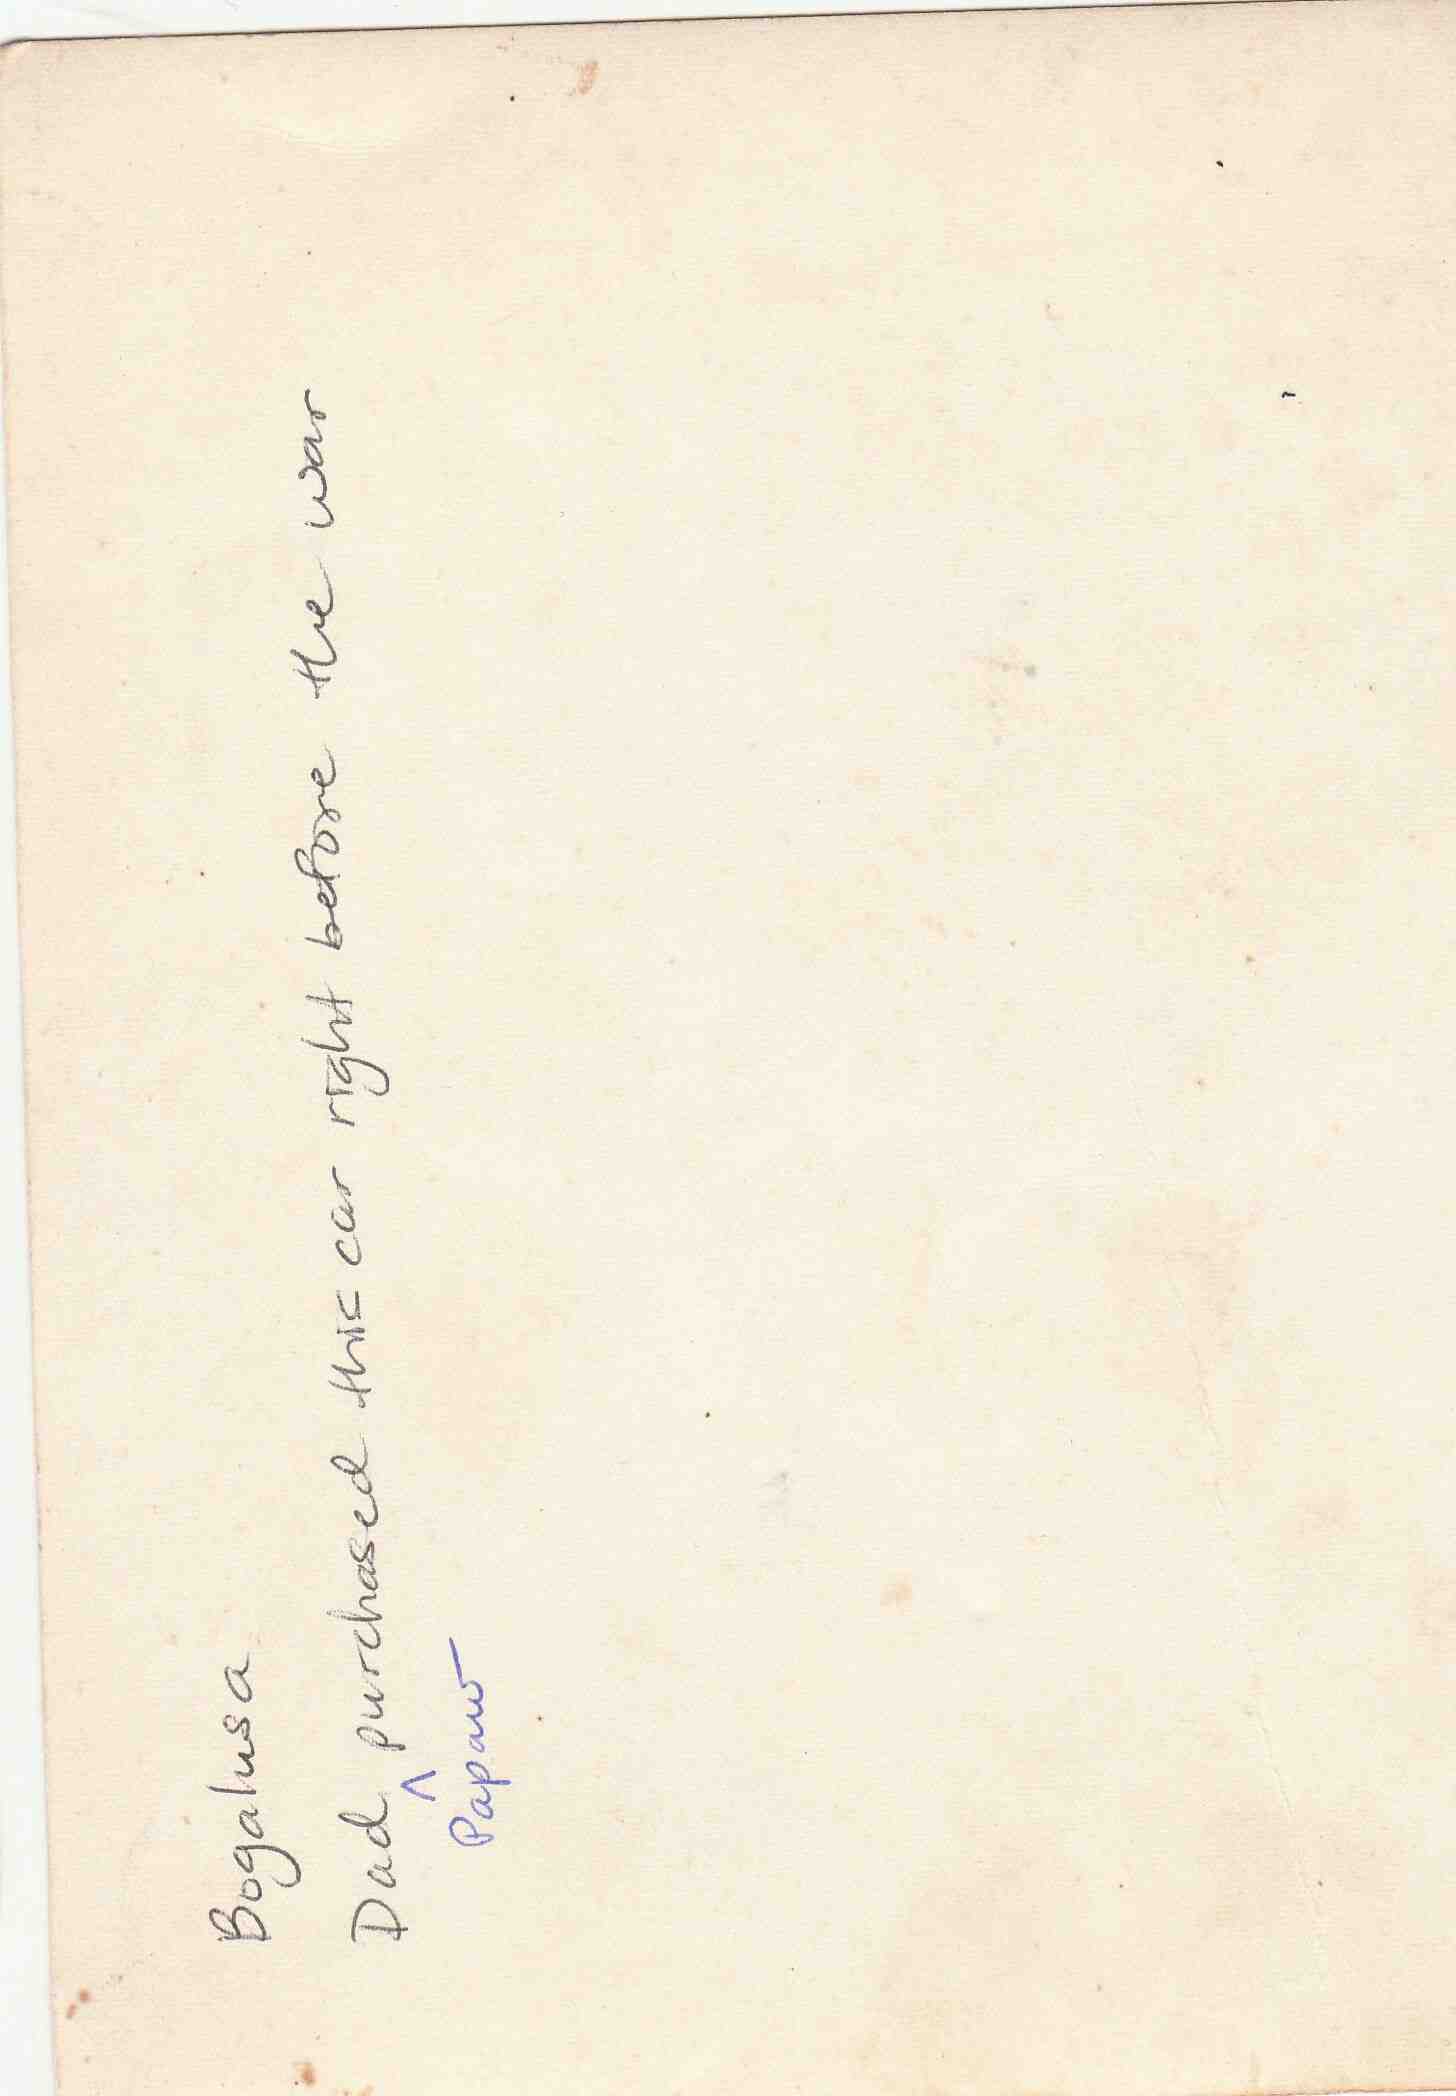 Bogalusa
Dad ^ purchased this car right before the war
Papaw